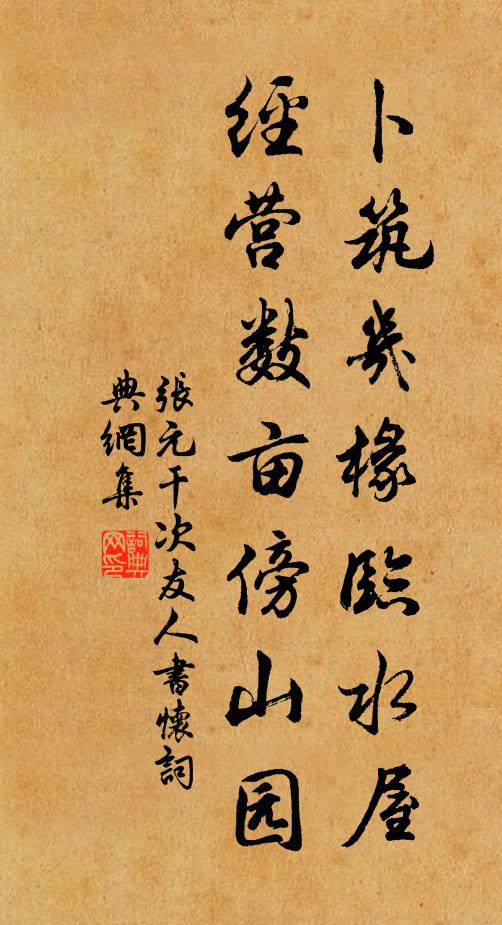 卜筑几椽臨水屋
經营数亩傍山园
張元干次友人書懷詞
典網集
詞典网印